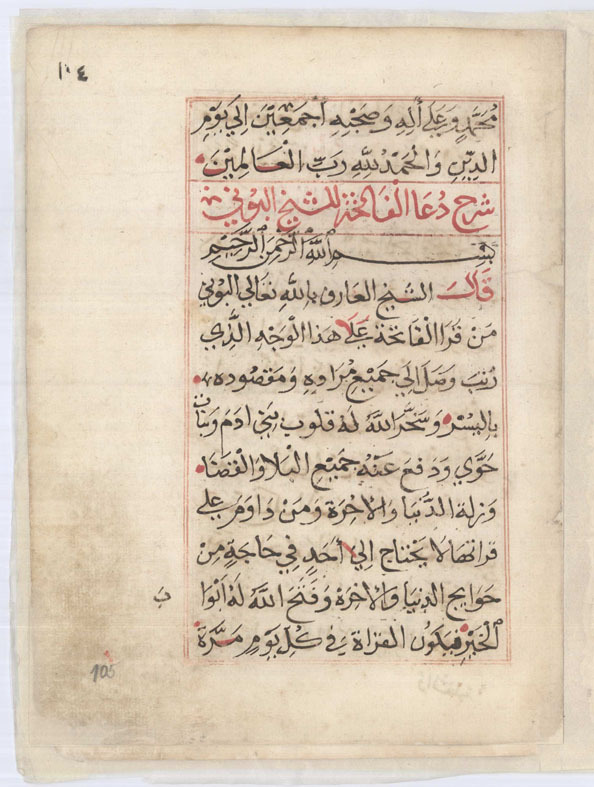 ١٠٤
مُحَمَّدٍ وَعَلَي أٰلِهِ وَصَحْبِهِ اَجْمَعِيْنَ اِلَي يَوْمِ
الدِّيْنِ وَالْحَمْدُ لِلّٰهِ رَبِّ الْعَالَمِيْنَ
شرح دُعَا الْفَاتِحَة لِلشَّيْخِ الْبَوْنِي
بِسْمِ اللّٰهِ الرَّحْمٰنِ الرَّحِيْمِ
قَالَ الشَّيْخُ الْعَارِفِ بِاللّٰهِ تَعَالَي الْبَوْنِي
مَنْ قَرَا الْفَاتِحَةَ عَلَي هٰذَا الْوَجْهِ الَّذِي
رُتِبَ وَصَلَ اِلَي جَمِيْعِ مُرَادِهِ وَمَقْصُودِهِ
بِالْيُسْرِ وَسَخَّرَ اللّٰهُ لَهُ قُلُوبَ بَنِي اٰدَمَ وَبَنَاتِ
حَوَّي وَدَفَعَ عَنْهُ جَمِيْعَ الْبَلَا وَالْقَضَا
وَزلة الدُّنْيَا وَالْاٰخِرَةِ وَمَنْ دَاوَمَ عَلَي
قِرَاتِهَا لَا يَحْتَاجُ اِلَي أَحَدٍ فِي حَاجَةٍ مِنْ
حَوَايِجِ الدُّنْيَا وَالْاٰخِرَةِ وَفَتَحَ اللّٰهُ لَهُ اَبْوَا
ب
الْخَيْرِ فَيَكُونُ الْقِرَاةُ فِي كُلِّ يَوْمٍ مَرَّةً
105